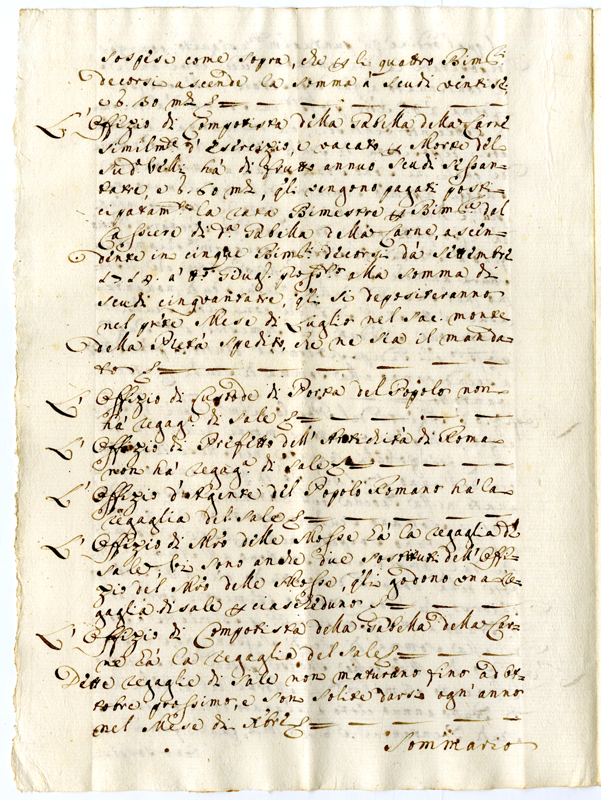 sospise come sopra, che p le quattro Bim.i
decorsi ascende la somma à scudi vintise
e b. 80 m.ta
L' Offizio di Computista della Gabella della Carne
similm.te d'esercizio, e vacato p Morte del
Sud.o Velli hà di frutto annuo scudi sessan=
tatre, e b. 60 m.ta, q.li vengono pagati post=
cipatam.te la rata Bimestre p Bim.e dal
Cassiere di d.a Gabella della Carne, ascen=
dente in cinque Bim.i decorsi dà Settembre
alla somma di
scudi cinquantatre, q.li si depositeranno
nel pnte Mese di Luglio nel Sac. Monte
della Pietà spedito, che ne sia il manda=
to
L' Offizio di Custode di Porta del Popolo non
hà regag.a di sale
L' Offizio di Prefetto dell' Antichità di Roma
non hà regag.a di sale
L' Offizio d'Agente del Popolo Romano hà la
regaglia del sale
L' Offizio di Mro delle Mosse hà la regaglia di
sale. Vi sono anche due sostituti dell'Offi=
zio del Mro delle Mosse, q.li godono una re=
gaglia di sale p ciascheduno
L' Offizio di Computista della Gabella della Car=
ne hà la regaglia del sale
Dette regaglie di sale non maturano fino ad Ot=
tobre prossimo, e son solite darsi ogn'anno
nel Mese di Xbre
Sommario